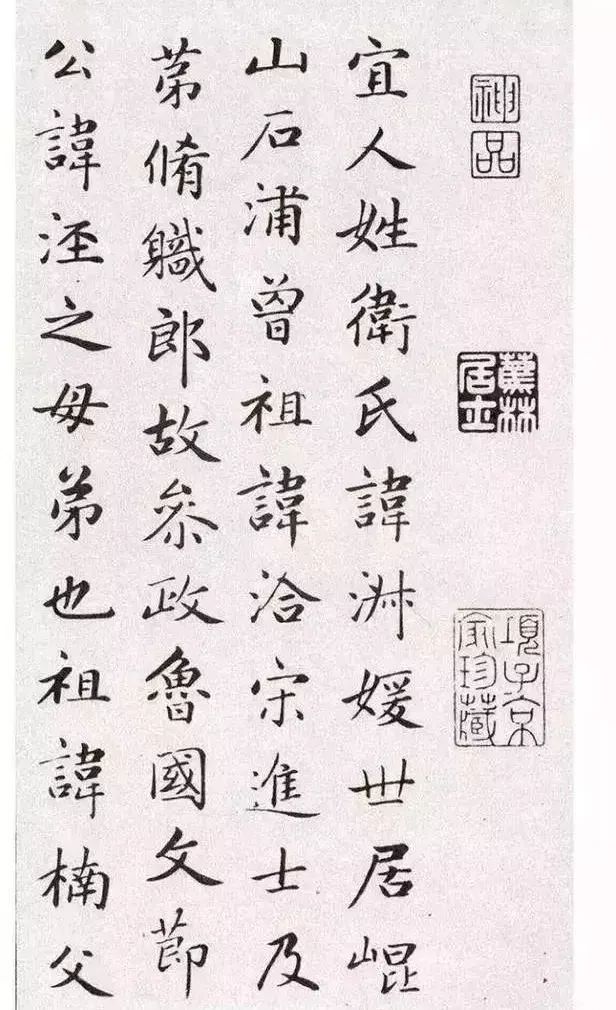 神品
蕉林居士
項子京家珍藏
宜人姓衛氏諱淑媛世居崐
山石浦曾祖諱洽宋進士及
第脩職郎故叅政魯國文莭
公諱涇之母弟也祖諱楠父